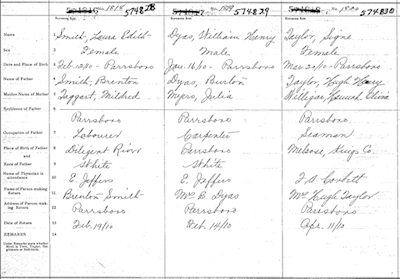 574828 574829 574830
Name 1 Smith, Edith Dyas, William Henry Taylor, Signe
Sex 2 Female Male Female
Date and Place of Birth 3 Feb. Parrsboro Jan. 16/10 - Parrsboro Mar. Parrsboro
Name of Father 4 Smith, Brenton Dyas, Burton Taylor, Hugh
Maiden Name of Mother 5 Taggart, Mildred Myers, Julia
Residence of Father 6 Parrsboro Parrsboro Parrsboro
Occupation of Father 7 Labourer Carpenter Seaman
Place of Birth of Father 8 Diligent River Parrsboro Melrose, Kings Co.
and
Race of Father 9 White White
Name of Physician in attendance 10 E. Jeffers E. Jeffers
Name of Person making Return 11 Brenton Smith Mrs B. Dyas Mrs Hugh Taylor
Address of Person making Return 12 Parrsboro Parrsboro Parrsboro
Date of Return 13 Feb. 19/10 Feb. 14/10 Apr. 11/10
REMARKS 14